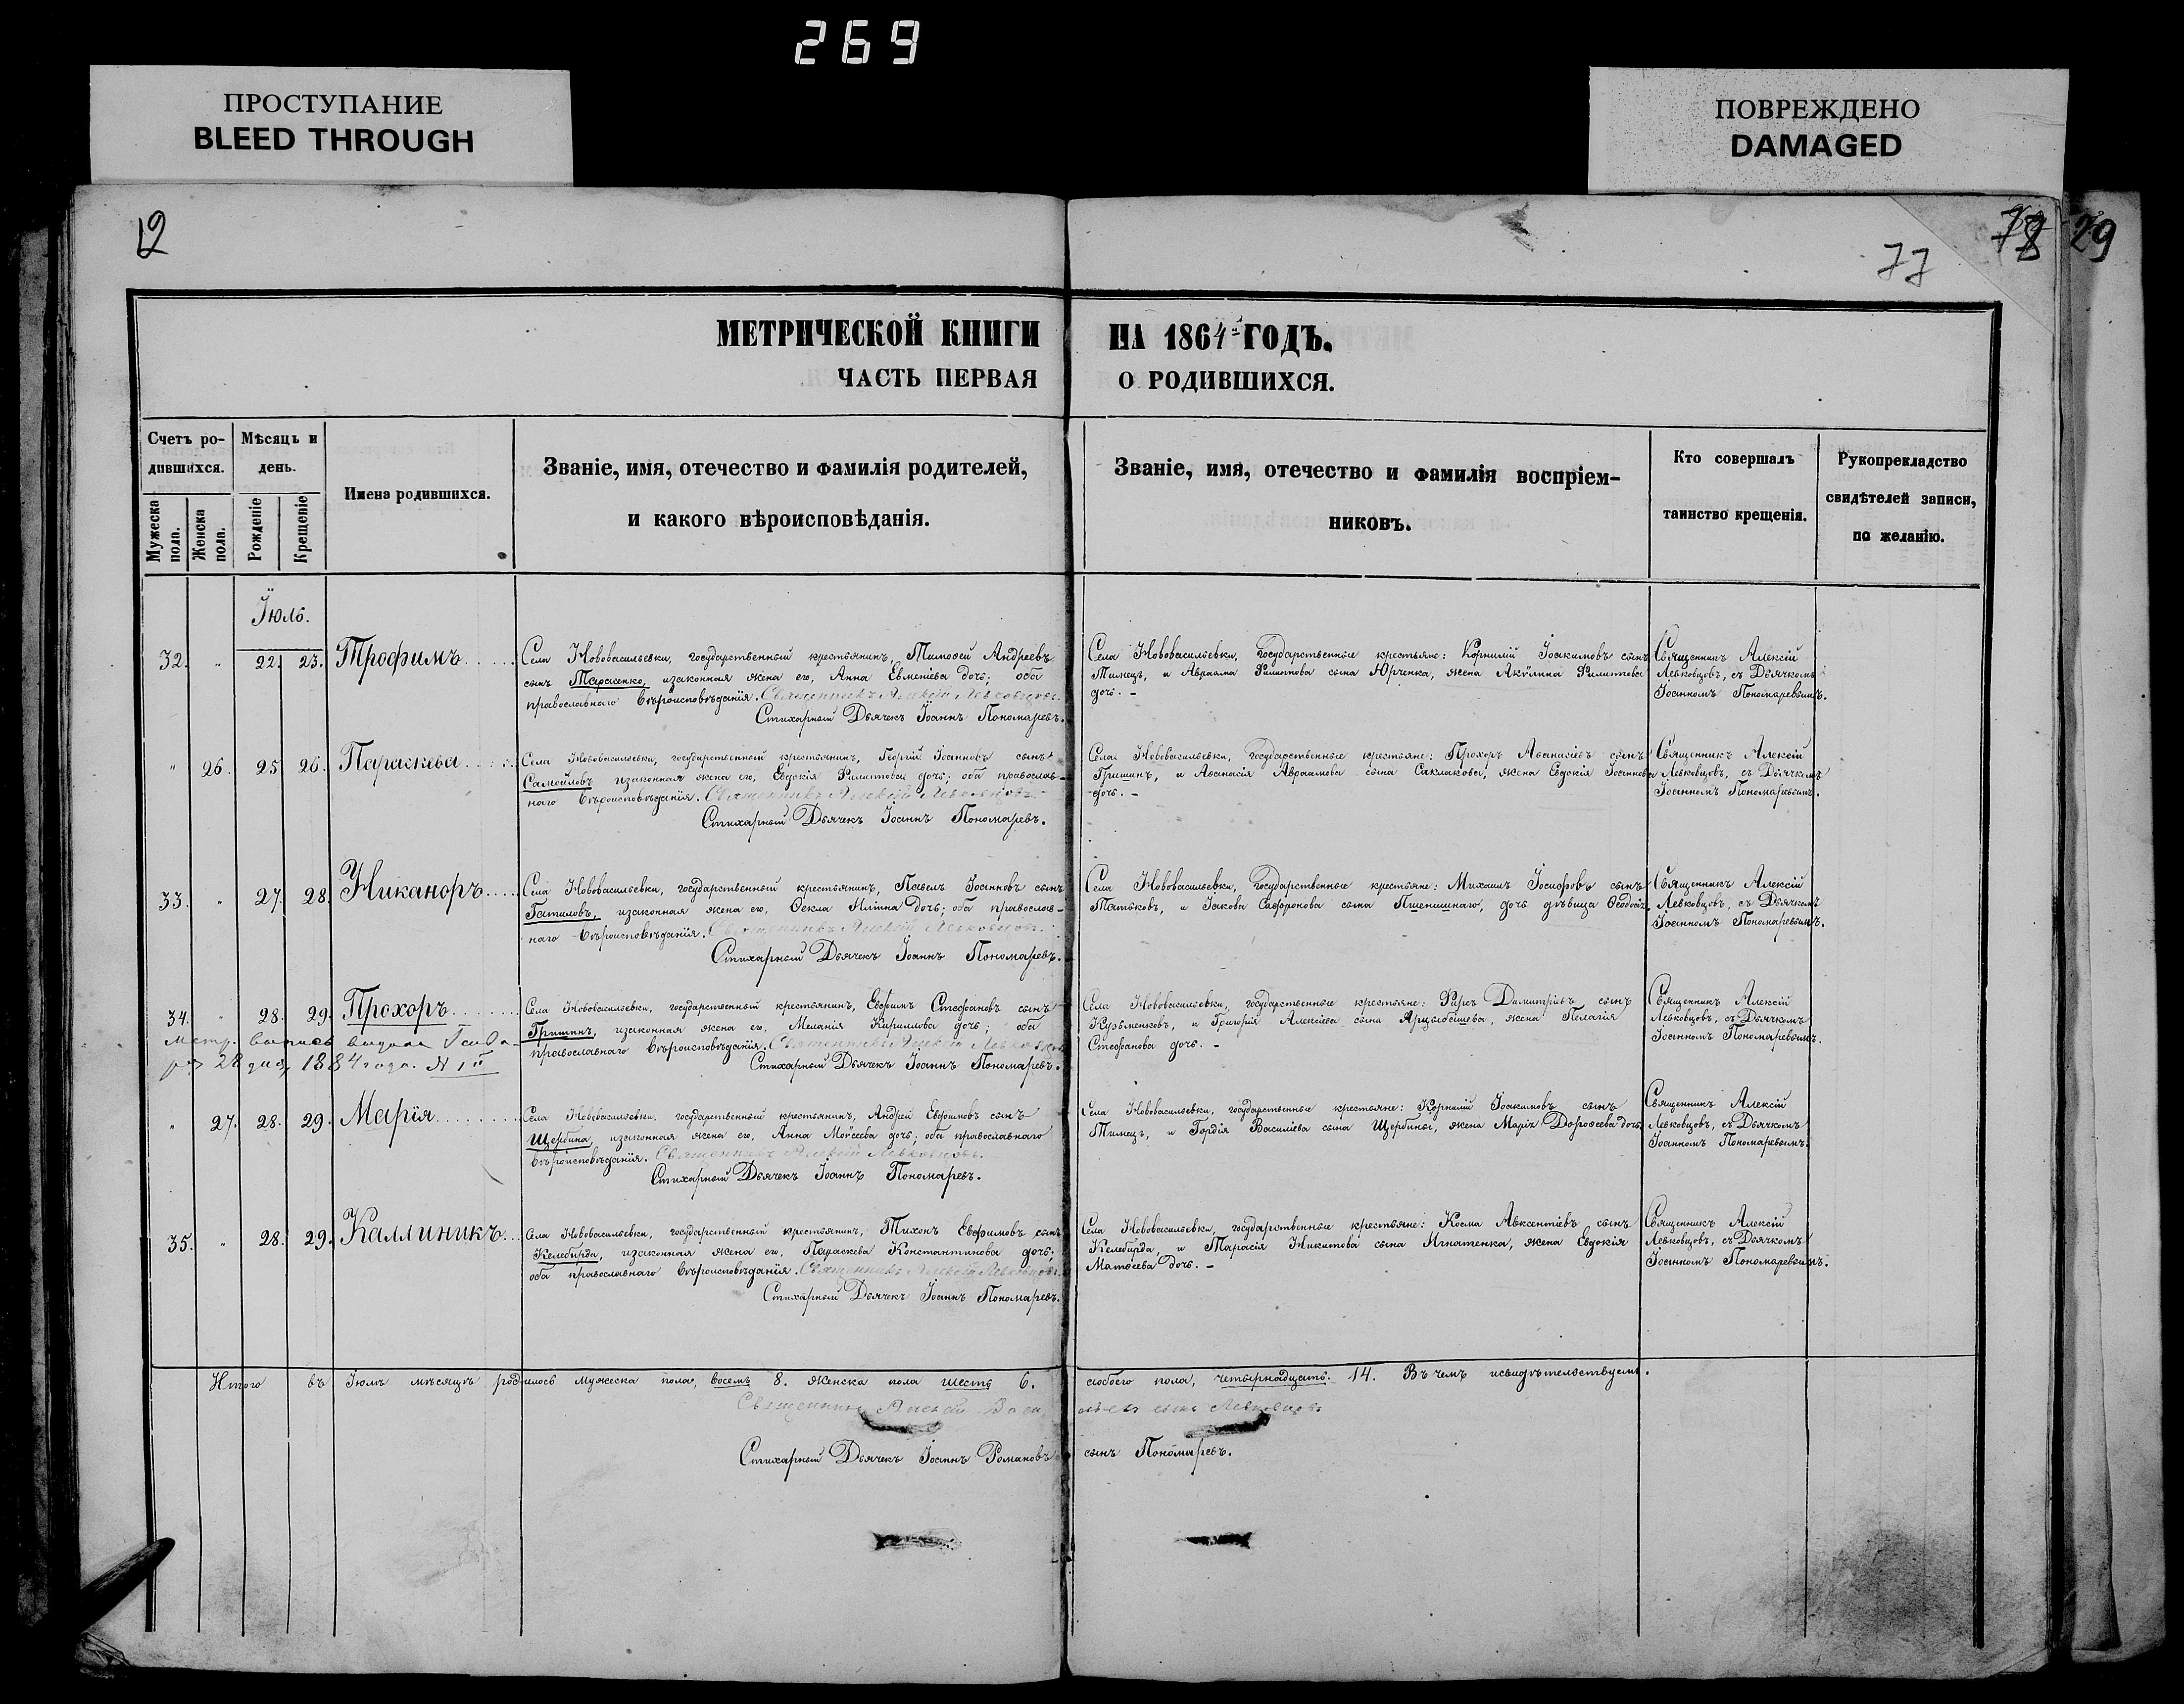 269
ПРОСТУПАНИЕ
BLEED THROUGH
ПОВРЕЖДЕНО
DAMAGED
12
77
78
29
МЕТРИЧЕСКОЙ КНИГИ НА 1864й ГОДЪ.
ЧАСТЬ ПЕРВАЯ О РОДИВШИХСЯ.
Счетъ родившихся.
Мѣсяцъ и день.
Имена родившихся.
Званіе, имя, отечество и фамилія родителей,
и какого вѣроисповѣданія.
Званіе, имя, отечество и фамилія воспріем-
никовъ.
Кто совершалъ
таинство крещенія.
Рукоприкладство
свидѣтелей записи,
по желанію.
Мужеска пола.
Женска пола.
Рожденіе
Крещеніе
Іюль.
32. " 22. 23. Трофимъ
Села Нововасильевки, государственный крестьянинъ, Тимоѳей Андреевъ
сынъ Тарасенко, изаконная жена его, Анна Евменіева дочь; оба
православнаго вѣроисповѣданія. Священникъ Алексій Левковцовъ.
Стихарный Дьячекъ Іоаннъ Пономаревъ.
Села Нововасильевки, Государственные крестьяне: Корнилій Іоакимовъ сынъ
Тимецъ, и Авраама Филипова сына Юрченка, жена Акулина Филипова
дочь. –
Священникъ Алексій
Левковцовъ, съ Дьячкомъ
Іоанномъ Пономаревымъ.
" 26. 25 26. Параскева
Села Нововасильевки, государственный крестьянинъ, Георгій Іоанновъ сынъ
Самойловъ изаконная жена его, Евдокія Филиппова дочь; оба православ-
наго вѣроисповѣданія. Священникъ Алексій Левковцовъ.
Стихарный Дьячекъ Іоаннъ Пономаревъ.
Села Нововасильевки, Государственные крестьяне: Прохоръ Аѳанасіевъ сынъ
Гришинъ, и Аѳанасія Авраамова сына Саклакова, жена Евдокія Іоаннова
дочь. –
Священникъ Алексій
Левковцовъ, съ Дьячкомъ
Іоанномъ Пономаревымъ.
33. " 27. 28. Никаноръ
Села Нововасильевки, государственный крестьянинъ, Павелъ Іоанновъ сынъ
Гатиловъ, изаконная жена его, Ѳекла Иліина дочь; оба православ-
наго вѣроисповѣданія. Священникъ Алексій Левковцовъ.
Стихарный Дьячекъ Іоаннъ Пономаревъ.
Села Нововасильевки, Государственные крестьяне: Михаилъ Іосифовъ сынъ
Татьковъ, и Іакова Сафронова сына Пшенишнаго, дочь дѣвица Ѳеодосія.
Священникъ Алексій
Левковцовъ, съ Дьячкомъ
Іоанномъ Пономаревымъ.
34. " 28. 29. Прохоръ
Метр. выпись выдана
28 1884 года. №
Села Нововасильевки, государственный крестьянинъ, Евфимъ Стефановъ сынъ
Гришинъ, изаконная жена его, Меланія Кириллова дочь; оба
православнаго вѣроисповѣданія. Священникъ Алексій Левковцовъ
Стихарный Дьячекъ Іоаннъ Пономаревъ.
Села Нововасильевки, государственные крестьяне: Фирсъ Димитріевъ сынъ
Кузьменковъ, и Григорія Алексіева сына Арцыбашева, жена Пелагія
Стефанова дочь. –
Священникъ Алексій
Левковцовъ, съ Дьячкомъ
Іоанномъ Пономаревымъ.
" 27. 28. 29. Марія
Села Нововасильевки, государственный крестьянинъ, Андрей Евфимовъ сынъ
Щербина, изаконная жена его, Анна Моѵсеева дочь; оба православнаго
вѣроисповѣданія. Священникъ Алексій Левковцовъ.
Стихарный Дьячекъ Іоаннъ Пономаревъ.
Села Нововасильевки, государственные крестьяне: Корнилій Іоакимовъ сынъ
Тимецъ, и Гордія Василіева сына Щербины, жена Марія Дороѳеева дочь.
Священникъ Алексій
Левковцовъ, съ Дьячкомъ
Іоанномъ Пономаревымъ.
35. " 28. 29. Каллиникъ
Села Нововасильевки, государственный крестьянинъ, Тихонъ Евфимовъ сынъ
Келебирда, изаконная жена его, Параскева Константинова дочь;
оба православнаго вѣроисповѣданія. Священникъ Алексій Левковцовъ.
Стихарный Дьячекъ Іоаннъ Пономаревъ.
Села Нововасильевки, государственные крестьяне: Косма Авксентіевъ сынъ
Келебирда, и Тарасія Никитова сына Игнатенка, жена Евдокія
Матѳеева дочь. –
Священникъ Алексій
Левковцовъ, съ Дьячкомъ
Іоанномъ Пономаревымъ.
Итого въ Іюлѣ мѣсяцѣ родилось мужеска пола, восемь 8. женска пола шесть 6. аобоего пола, четырнадцать. 14. Въ чемъ исвидѣтельствуемъ.
Священникъ Алексій сынъ Левковцовъ
Стихарный Дьячекъ Іоаннъ Романовъ сынъ Пономаревъ.